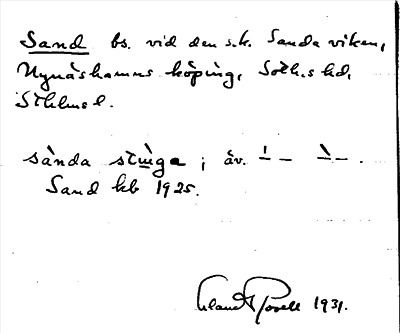 Sand bs. vid den s.k. Sanda viken,
Nynäshamns köping, Soth.s hd,
Sthlms l.
sànda stùiga ; äv. –́ – –̀ – .
Sand kb 1925.
Rosell 1931.